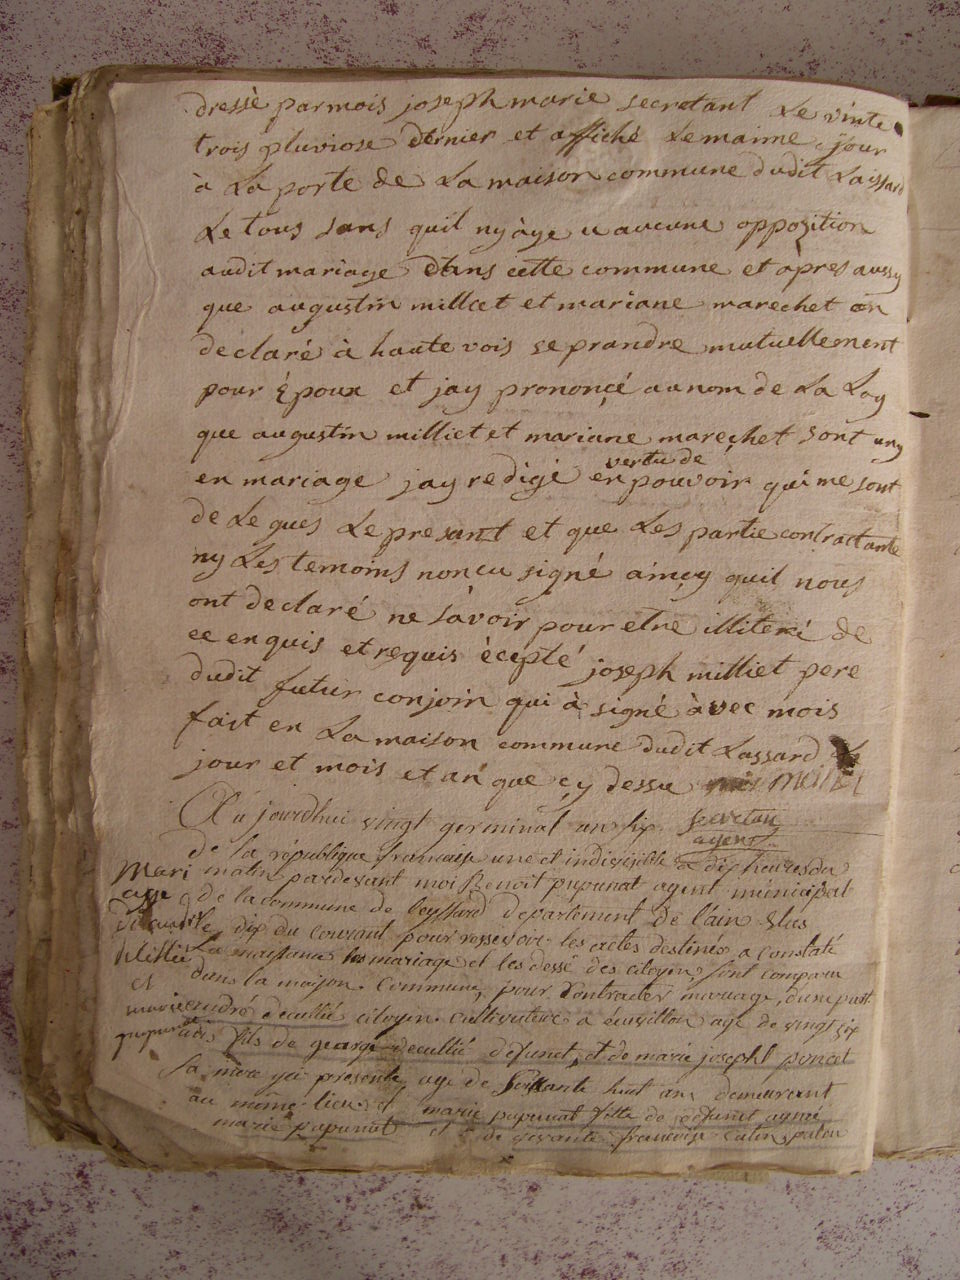 dressè par mois joseph marie secretant Le vinte
trois pluviose dernier et affiché Le maime jour
à La porte de La maison commune dudit Laissard
Le tous sans quil ny àye u aucune oppozition
audit mariage dans cette commune et àpres aussy
que augustin milliet et mariane marechet on
declaré à haute vois se prandre mutuellement
pour Époux et jay prononçé au nom de La Loy
que augustin milliet et mariane mareçhet sont uny
en mariage jay redigé en vertu de pouvoir qui me sont
de Le gues Le presant et que Les partie contractante
ny Les temoins non cu signé ainçy quil nous
ont declaré ne sàvoir pour etre illiteré de
ce enquis et requis èçepté joseph milliet pere
dudit futur conjoin qui à signé àvec mois
fait en La maison commune dudit Lassard Le
jour et mois et an que çy dessu
secretan
agent
Au jourdhui vingt germinal an six
de la république francaise une et indivisible a dix heures du
matin pardevant moi Benoit pupunat agent municipal
de la commune de leyssard departement de l'ain Elus
le dix du courant pour ressevoir les actes destinés a constaté
La naissance les mariage et les dessé des citoyen sont comparu
dans la maison Commune, pour Contracter mariage, dune part
andré decullié citoyen Cultivateur a age de vingt six
ans fils de george decullié defunct, et de marie joseph poncet
Sa mere yci presente age de Soissante huit ans demeurant
au même lieu et marie pupunat fille de defunct aymé
marie pupunat et de vivante francoise
Mari
age
et
marie
pupunat